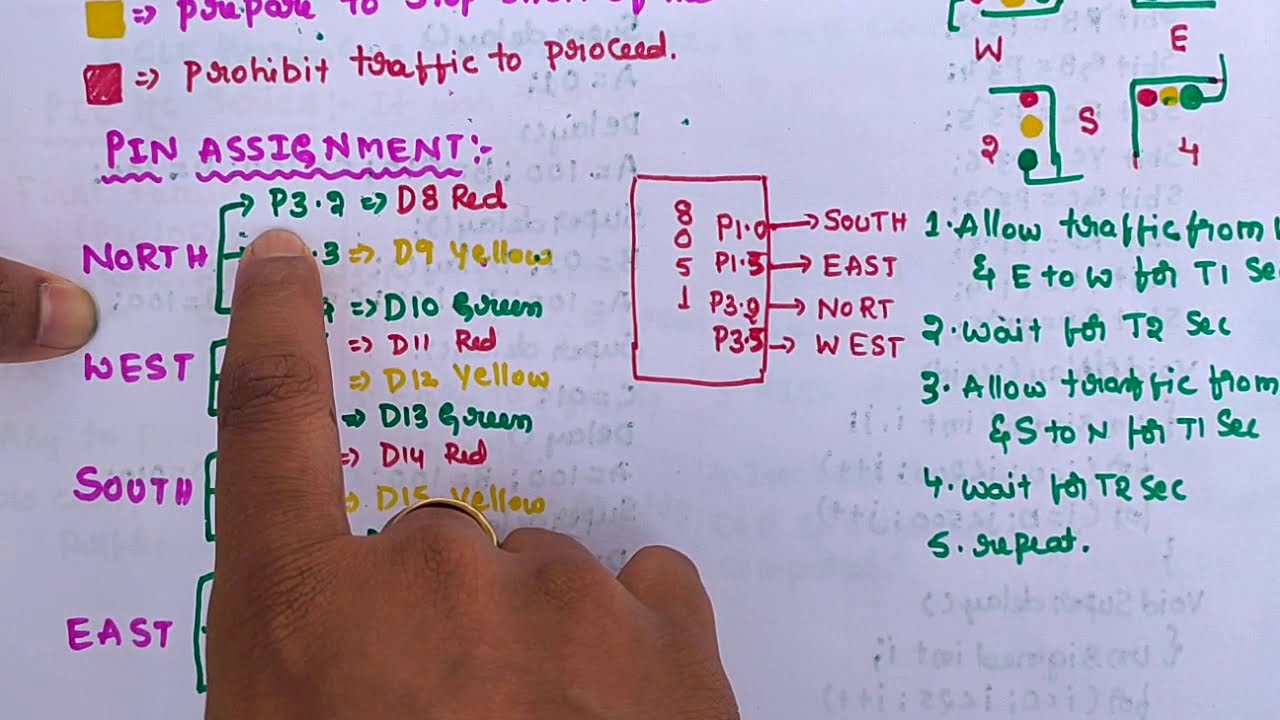 => prepare to stop
=> prohibit traffic to proceed.
PIN ASSIGNMENT:-
NORTH
P3.2 => D8 Red
.3 => D9 Yellow
=> D10 Green
WEST
=> D11 Red
=> D12 Yellow
=> D13 Green
SOUTH
=> D14 Red
=> D15 Yellow
EAST
8051
P1.0 → SOUTH
P1.5 → EAST
P3.2 → NORT
P3.5 → WEST
W
E
S
2
4
1. Allow traffic from
& E to W for T1 Sec
2. wait for T2 Sec
3. Allow traffic from
& S to N for T1 Sec
4. wait for T2 Sec
5. repeat.